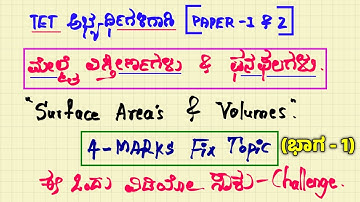 TET ಅಭ್ಯರ್ಥಿಗಳಿಗಾಗಿ [PAPER-1 & 2]
ಮೇಲ್ಮೈ ವಿಸ್ತೀರ್ಣಗಳು & ಘನಫಲಗಳು.
"Surface Area's & Volumes".
4-MARKS Fix Topic (ಭಾಗ - 1)
ಈ ಒಂದು ವಿಡಿಯೋ ಸಾಕು - Challenge.